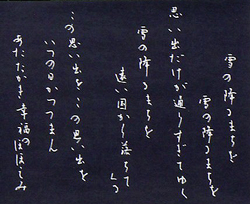 雪の降るまちを
雪の降るまちを
思い出だけが通りすぎてゆく
雪の降るまちを
遠い国から落ちてくる
この思い出を この思い出を
いつの日かつつまん
あたたかき幸福のほほえみ